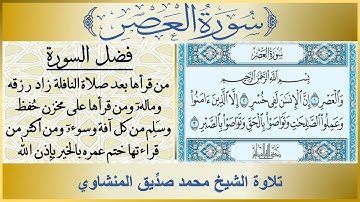 سورة العصر
فضل السورة
من قرأها بعد صلاة النافلة زاد رزقه
وماله ومن قرأها على مخزن حُفظ
وسَلِم من كل آفة وسوء ومن أكثر من
قراءتها ختم عمره بالخير بإذن الله
سورة العصر
بِسْمِ اللَّهِ الرَّحْمَٰنِ الرَّحِيمِ
وَالْعَصْرِ ۝١ إِنَّ الْإِنسَٰنَ لَفِي خُسْرٍ ۝٢ إِلَّا الَّذِينَ ءَامَنُوا
وَعَمِلُوا الصَّٰلِحَٰتِ وَتَوَاصَوْا بِالْحَقِّ وَتَوَاصَوْا بِالصَّبْرِ ۝٣
تلاوة الشيخ محمد صدِّيق المنشاوي